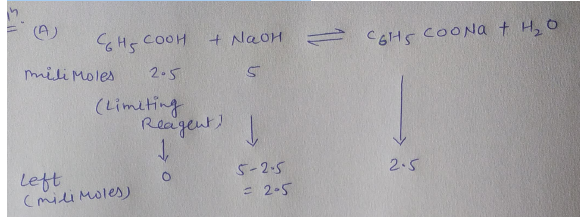 17.
(A) C6H5COOH + NaOH ⇌ C6H5COONa + H2O
milimoles 2.5 5
(Limiting
Reagent)
↓ ↓ ↓
Left 0 5-2.5 2.5
(milimoles) = 2.5